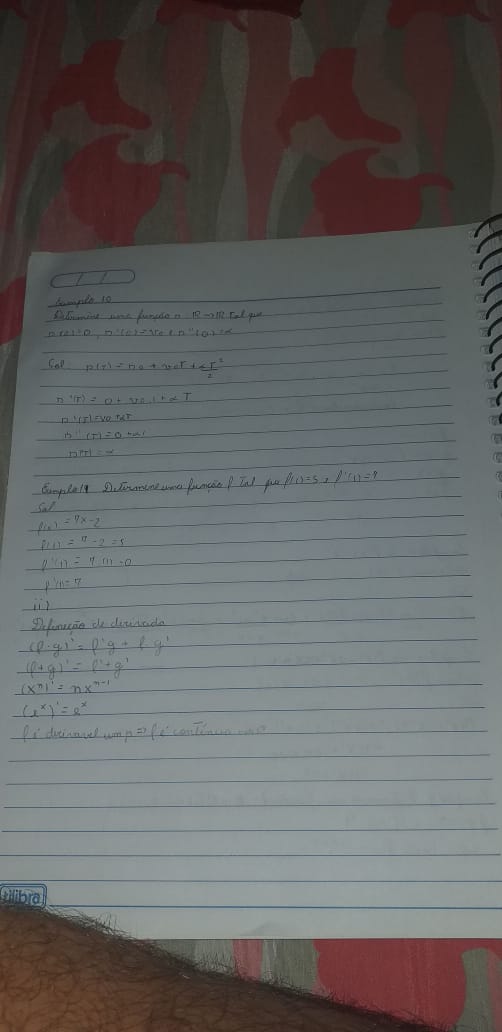 Exemplo 10
Determine uma função n: R→R tal que
n(0)=0, n'(0)=v0 e n''(0)=α
Sol n(T) = n0 + v0T + αT²/2
n'(T) = 0 + v0.1 + α T
n'(T)=v0+αT
n''(T)=0+α.1
n''(T)=α
Exemplo 11 Determine uma função f Tal que f(1)=5 e f'(1)=7
Sol
f(x) = 7x-2
f(1) = 7-2=5
f'(1) = 7 - 0
f'(1)=7
ii)
Definição de derivada
(f·g)' = f'g + f g'
(f+g)' = f'+g'
(xⁿ)' = nxⁿ⁻¹
(eˣ)'=eˣ
f é derivavel um p ⇒ f é contínua
tilibra